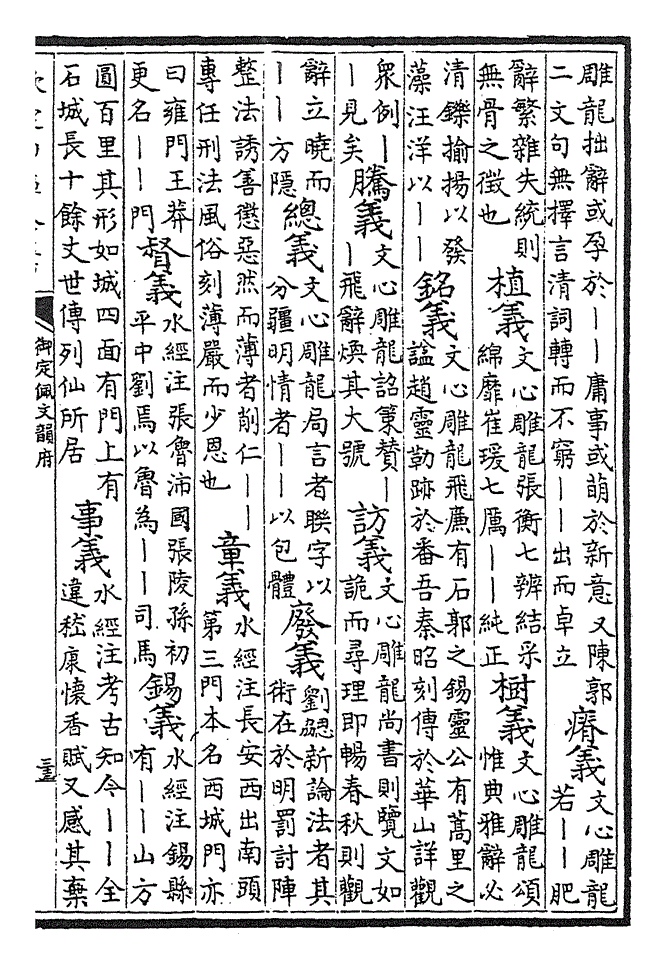 雕龍拙辭或孕於丨丨庸事或萌於新意又陳郭
二文句無擇言清詞轉而不窮丨丨出而卓立
瘠義
文心雕龍
若丨丨肥
辭繁雜失統則
無骨之徵也
植義
文心雕龍張衡七辨結采
綿靡崔瑗七厲丨丨純正
樹義
文心雕龍頌
惟典雅辭必
清鑠揄揚以發
藻汪洋以丨丨
銘義
文心雕龍飛廉有石郭之錫靈公有蒿里之
諡趙靈勒跡於番吾秦昭刻傳於華山詳觀
衆例丨
丨見矣
騰義
文心雕龍詔策贊丨
丨飛辭煥其大號
訪義
文心雕龍尚書則覽文如
詭而尋理即暢春秋則觀
辭立曉而
丨丨方隱
總義
文心雕龍局言者聯字以
分疆明情者丨丨以包體
廢義
劉勰新論法者其
術在於明罰討陣
整法誘善懲惡然而薄者削仁丨丨
專任刑法風俗刻薄嚴而少恩也
童義
水經注長安西出南頭
第三門本名西城門亦
曰雍門王莽
更名丨丨門
督義
水經注張魯沛國張陵孫初
平中劉焉以魯為丨丨司馬
錫義
水經注錫縣
有丨丨山方
圓百里其形如城四面有門上有
石城長十餘丈世傳列仙所居
事義
水經注考古知今丨丨全
違嵇康懷香賦又感其棄
御定佩文韻府
三五